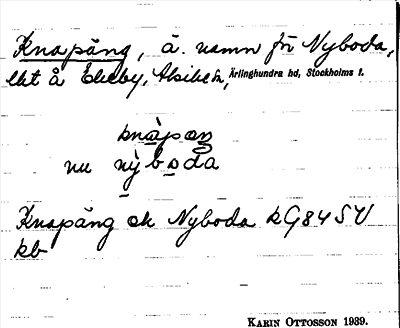 Knapäng, ä. namn för Nyboda,
Ärlinghundra hd, Stockholms l.
knàpɑŋ
nu nỳboda
Knapäng ok Nyboda kG84SV
kb
KARIN OTTOSSON 1939.